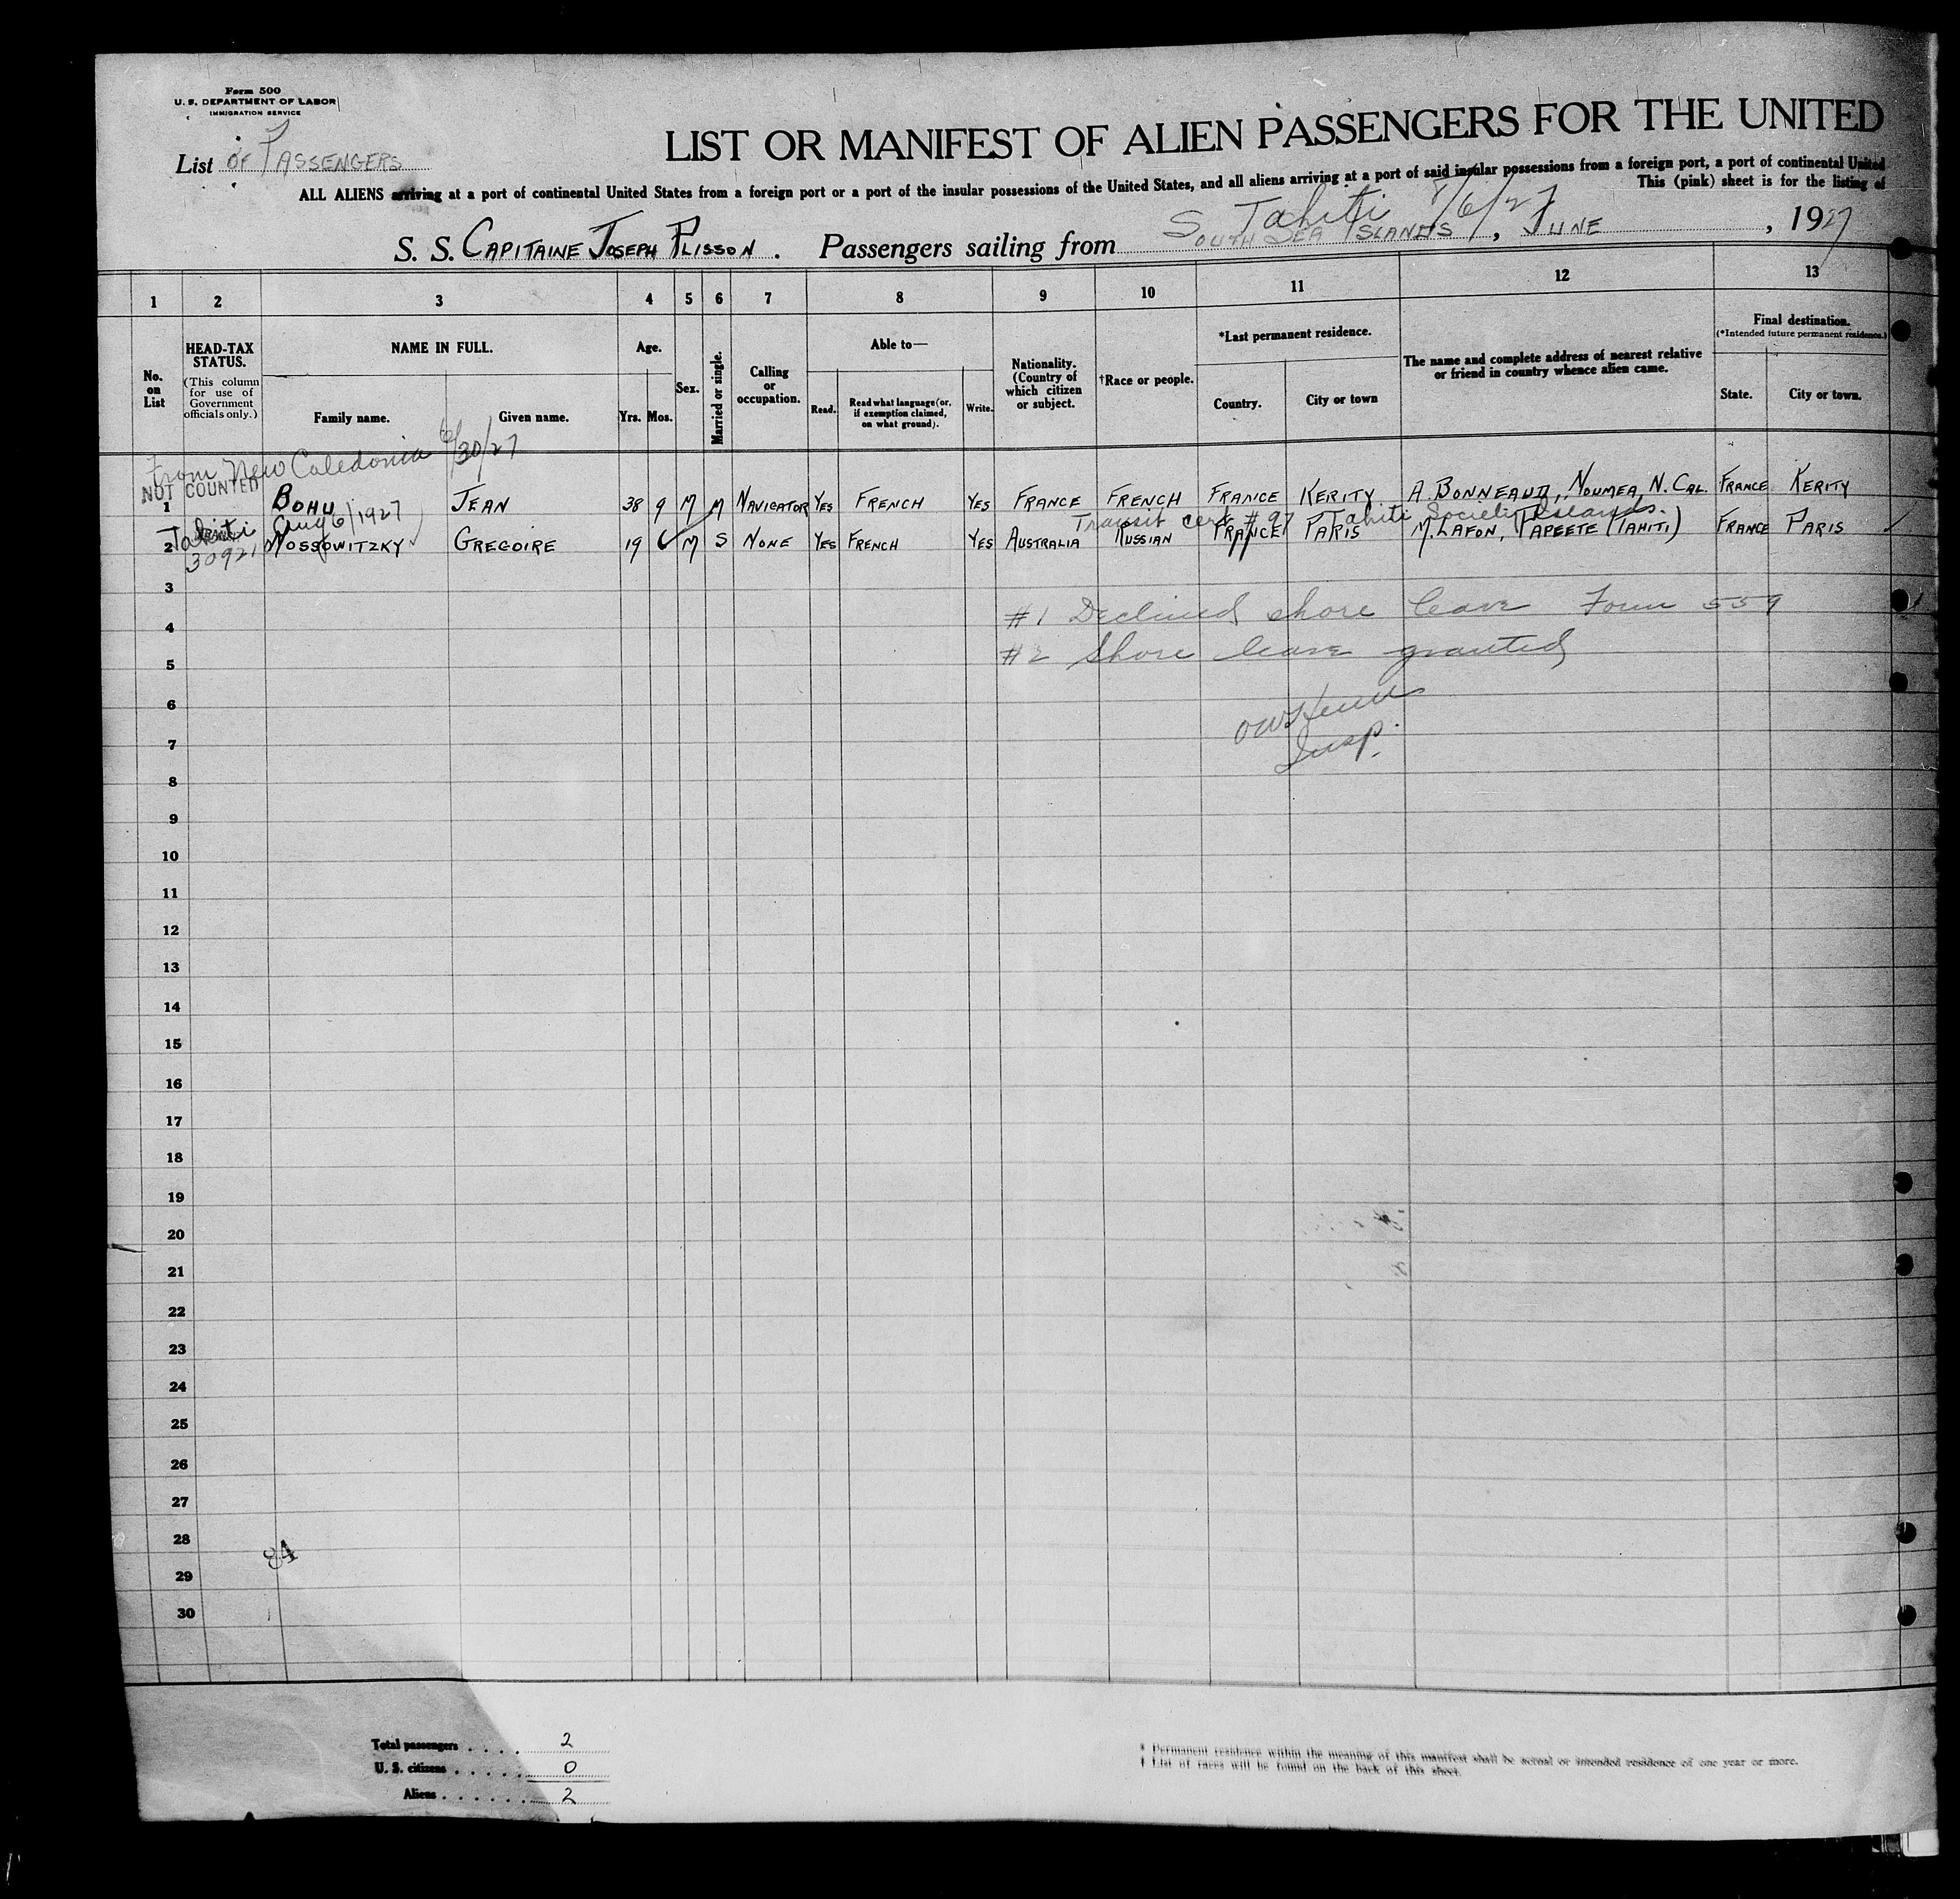 Form 500
U. S. DEPARTMENT OF LABOR
IMMIGRATION SERVICE
List OF PASSENGERS
LIST OR MANIFEST OF ALIEN PASSENGERS FOR THE UNITED
ALL ALIENS arriving at a port of continental United States from a foreign port or a port of the insular possessions of the United States, and all aliens arriving at a port of said insular possessions from a foreign port, a port of continental United
This (pink) sheet is for the listing of
Tahiti 8/6/27
S. S. CAPITAINE JOSEPH PLISSON . Passengers sailing from SOUTH SEA ISLANDS , JUNE , 1927
1 2 3 4 5 6 7 8 9 10 11 12 13
No. on List
HEAD-TAX STATUS.
(This column for use of Government officials only.)
NAME IN FULL.
Family name. Given name.
Age.
Yrs. Mos.
Sex.
Married or single.
Calling or occupation.
Able to—
Read. Read what language (or, if exemption claimed, on what ground). Write.
Nationality. (Country of which citizen or subject.
†Race or people.
*Last permanent residence.
Country. City or town
The name and complete address of nearest relative or friend in country whence alien came.
Final destination.
(*Intended future permanent residence.)
State. City or town.
From New Caledonia 6/30/27
NOT COUNTED
1 BOHU JEAN 38 9 M M NAVIGATOR YES FRENCH YES FRANCE FRENCH FRANCE KERITY A. BONNEAUD, NOUMEA, N. CAL. FRANCE KERITY
Tahiti Aug 6/1927 Transit Cert # 97 Tahiti Society Islands.
2 MOSSOWITZKY GREGOIRE 19 M S NONE YES FRENCH YES AUSTRALIA RUSSIAN FRANCE PARIS M. LAFON, PAPEETE (TAHITI) FRANCE PARIS
30921
3
#1 Declined shore leave Form 559
4
#2 Shore leave granted
5
6
7
Insp.
8
9
10
11
12
13
14
15
16
17
18
19
20
21
22
23
24
25
26
27
28
84
29
30
Total passengers . . . . 2
U. S. citizens . . . . . . 0
Aliens . . . . . . 2
* Permanent residence within the meaning of this manifest shall be actual or intended residence of one year or more.
† List of races will be found on the back of this sheet.